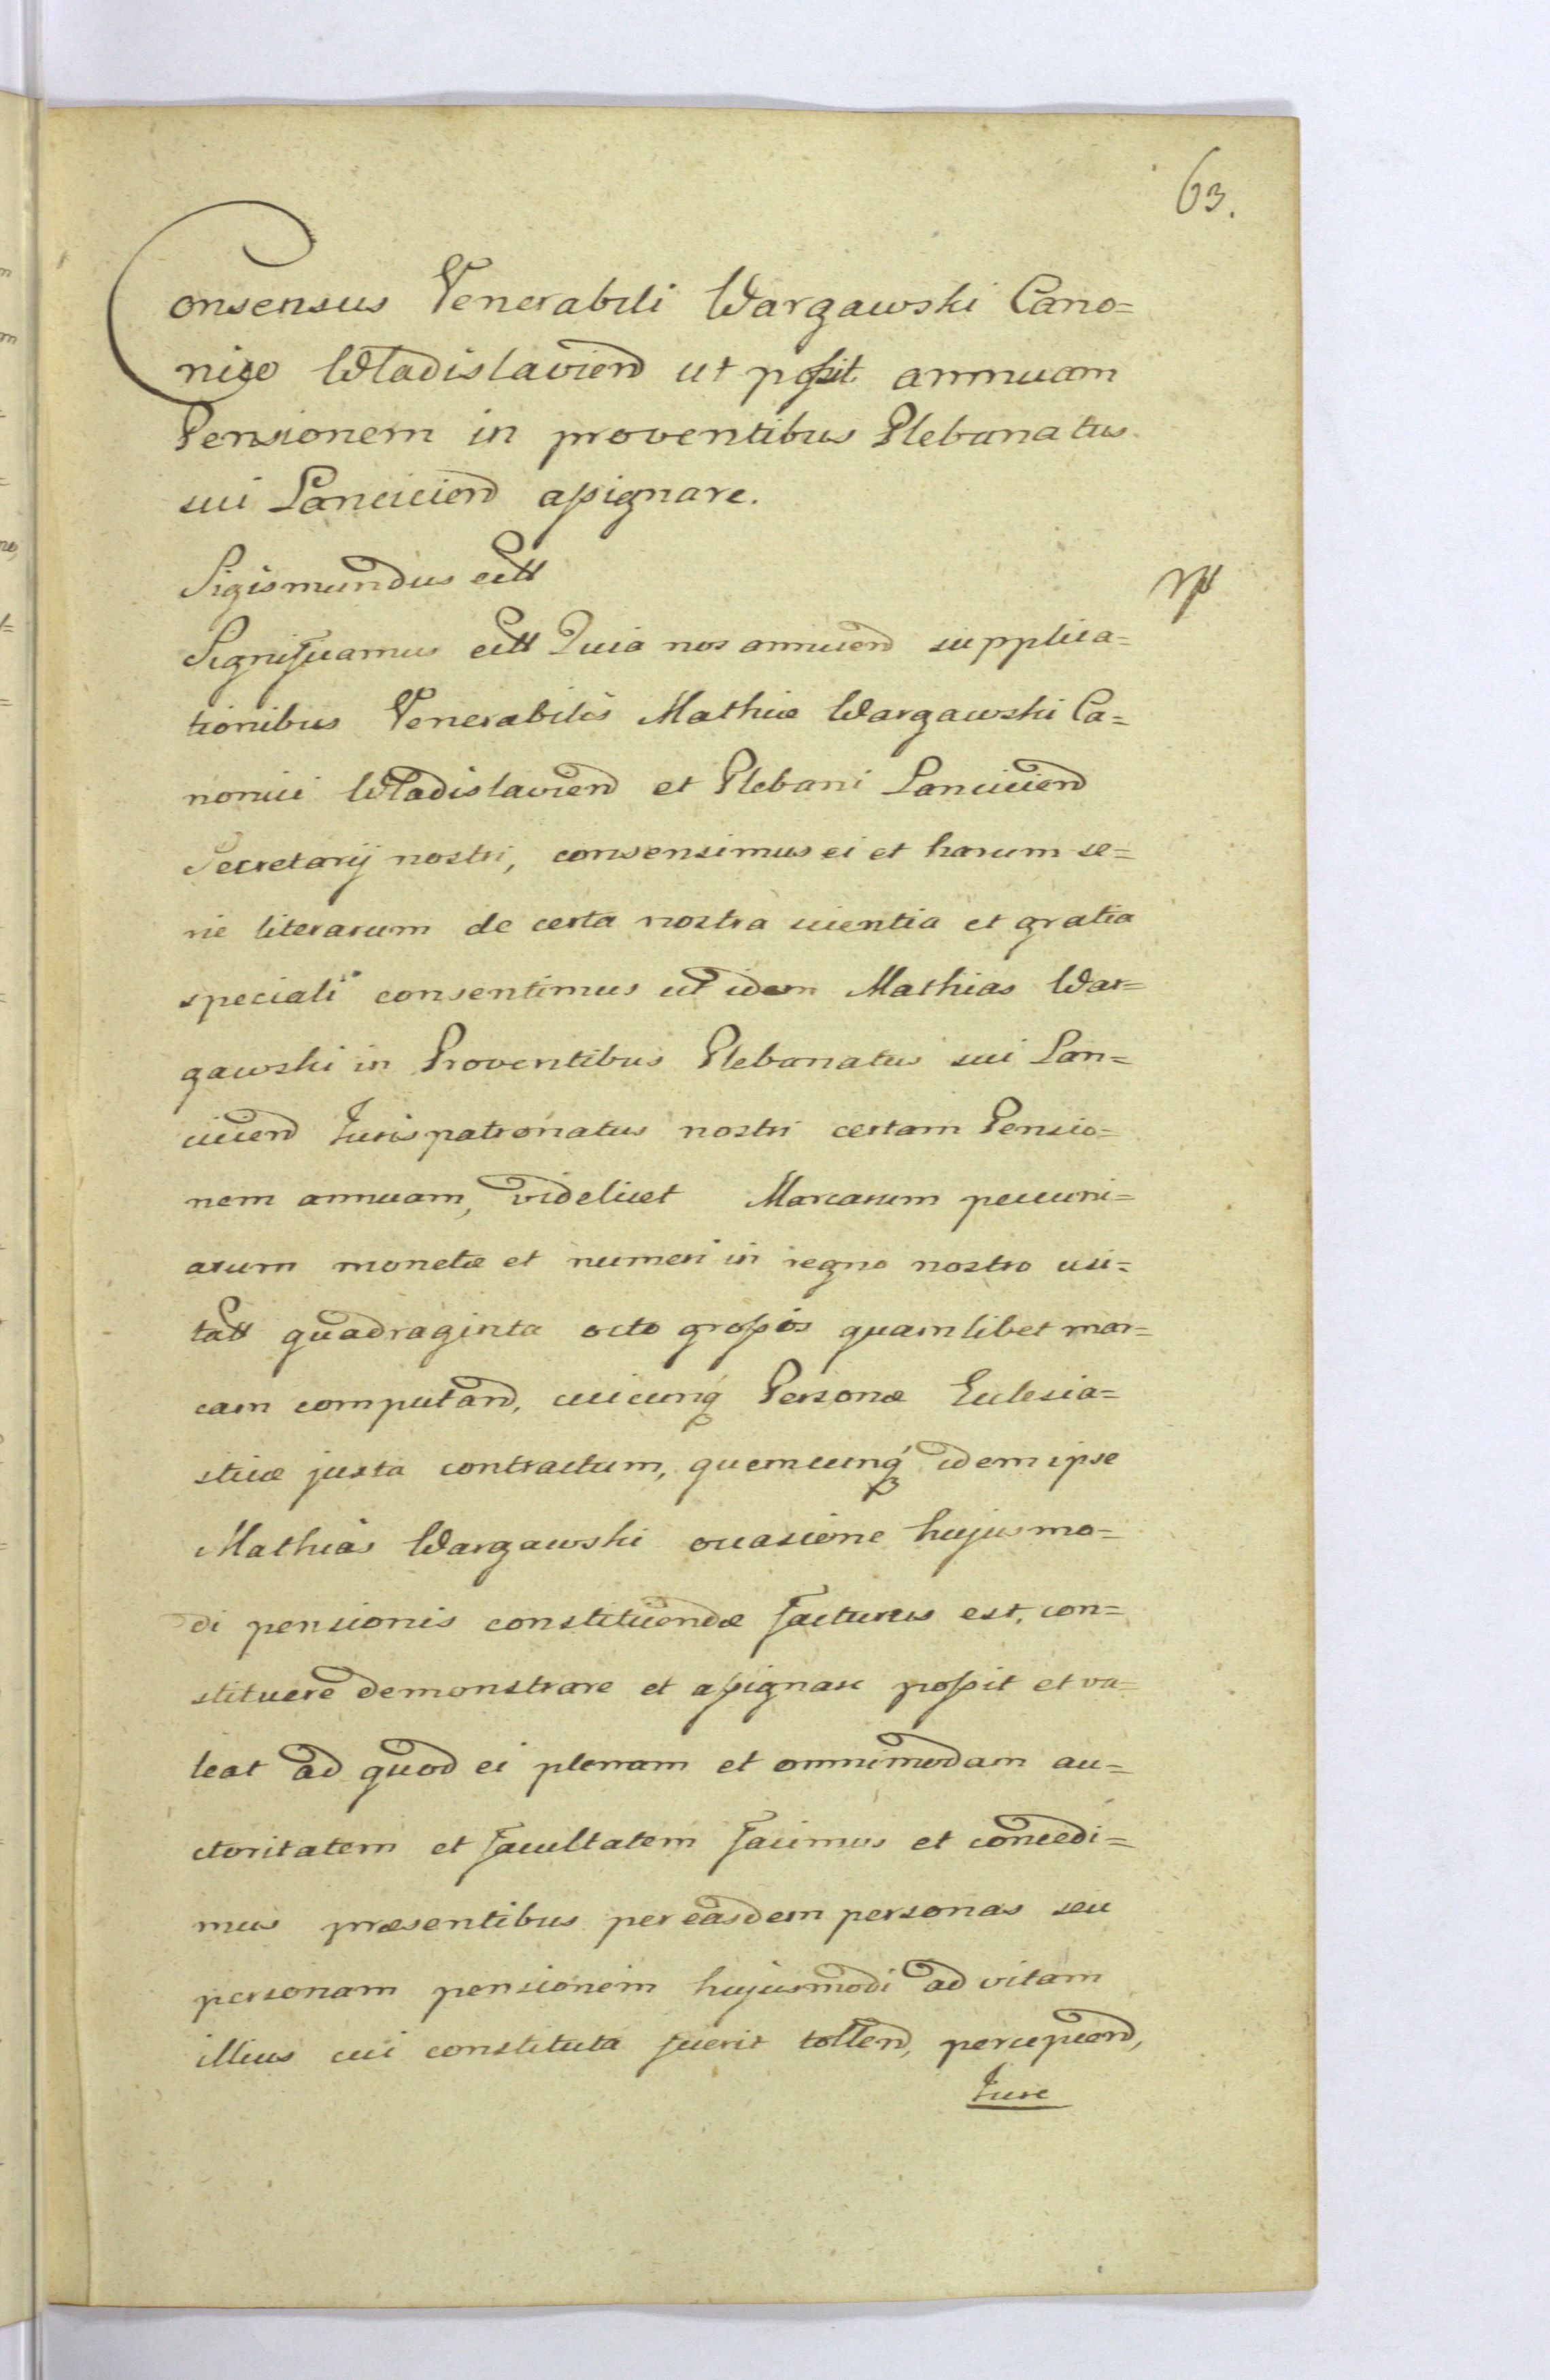 63.
Consensus Venerabili Wargawski Cano=
nico Wladislaviend ut possit annuam
Pensionem in proventibus Plebanatus
sui Lanciciend assignare.
Sigismundus ectt
Significamus ectt Quia nos annuend supplica=
tionibus Venerabilis Mathiæ Wargawski Ca=
nonici Wladislaviend et Plebani Lanciciend
Secretarij nostri, consensimus ei et harum se=
rie literarum de certa nostra scientia et gratia
speciali consentimus ut idem Mathias War=
gawski in Proventibus Plebanatus sui Lan=
ciciend Jurispatronatus nostri certam Pensio=
nem annuam, videlicet Marcarum pecuni=
arum monetæ et numeri in regno nostro usi=
tatt quadraginta octo grossos quamlibet mar=
cam computand, cuicunq Personæ Ecclesia=
sticæ juxta contractum, quemcunq idem ipse
Mathias Wargawski occasione hujusmo=
di pensionis constituendæ facturus est, con=
stituere demonstrare et assignare possit et va=
leat ad quod ei plenam et omnimodam au=
ctoritatem et facultatem facimus et concedi=
mus præsentibus per easdem personas seu
personam pensionem hujusmodi ad vitam
illius cui constituta fuerit tollend, percipiend,
Jure